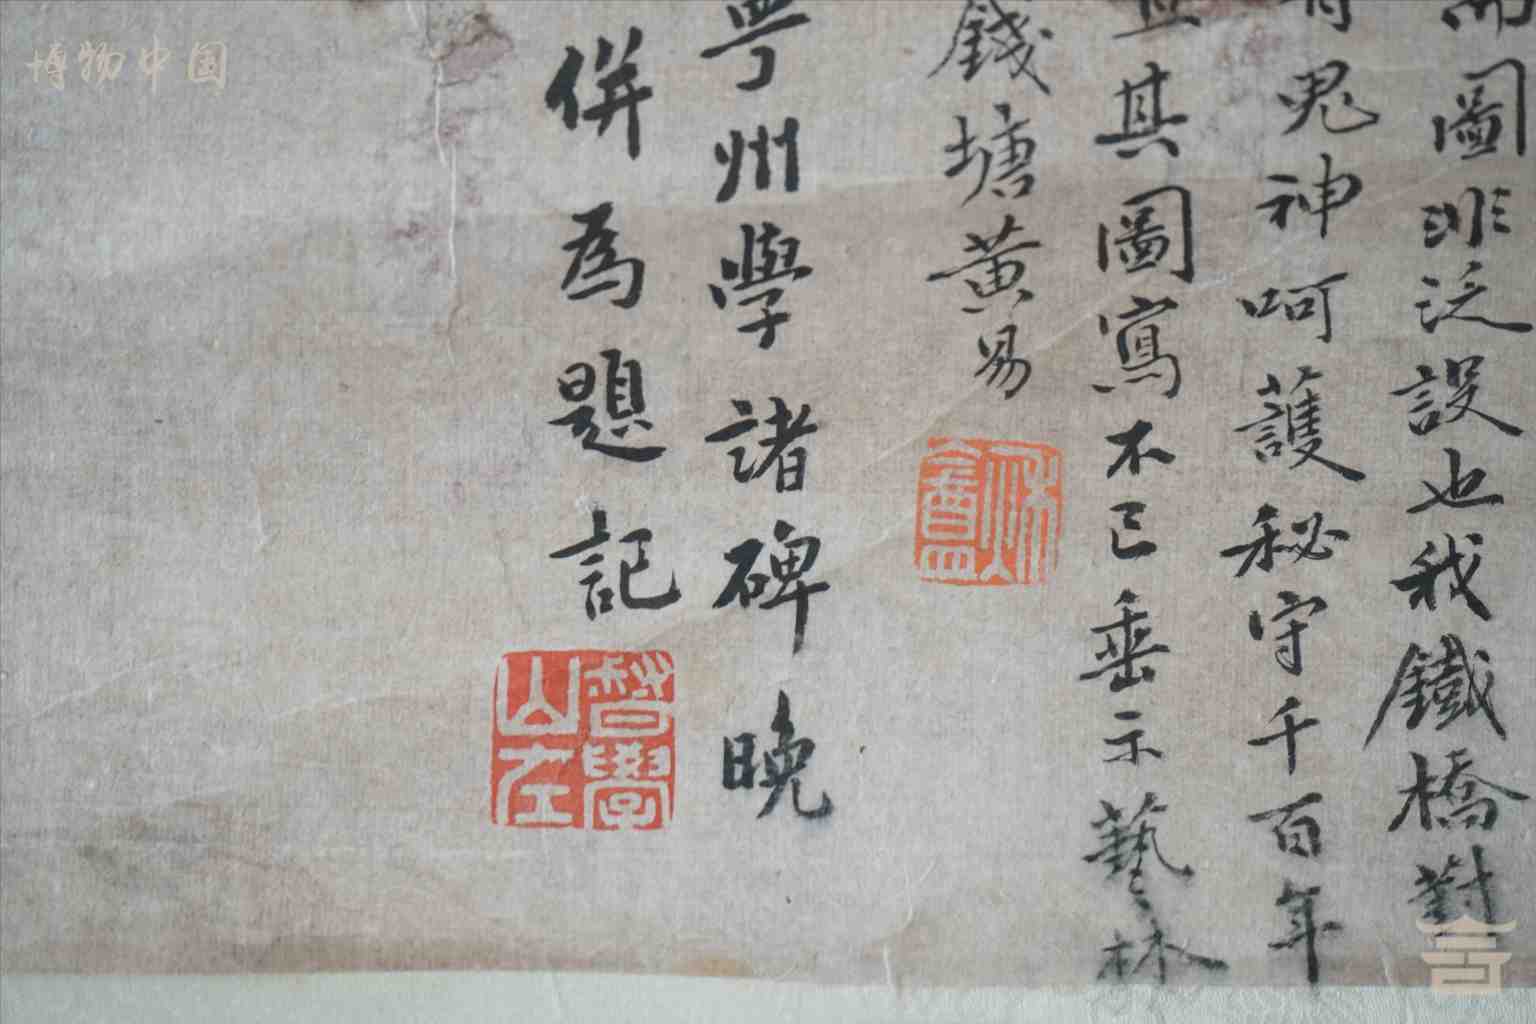 博物中国
圖非泛設也我鐵橋對
鬼神呵護秘守千百年
其圖寫不已垂示藝林
錢塘黃易
秋盦
州學諸碑晚
併為題記
督學
山左